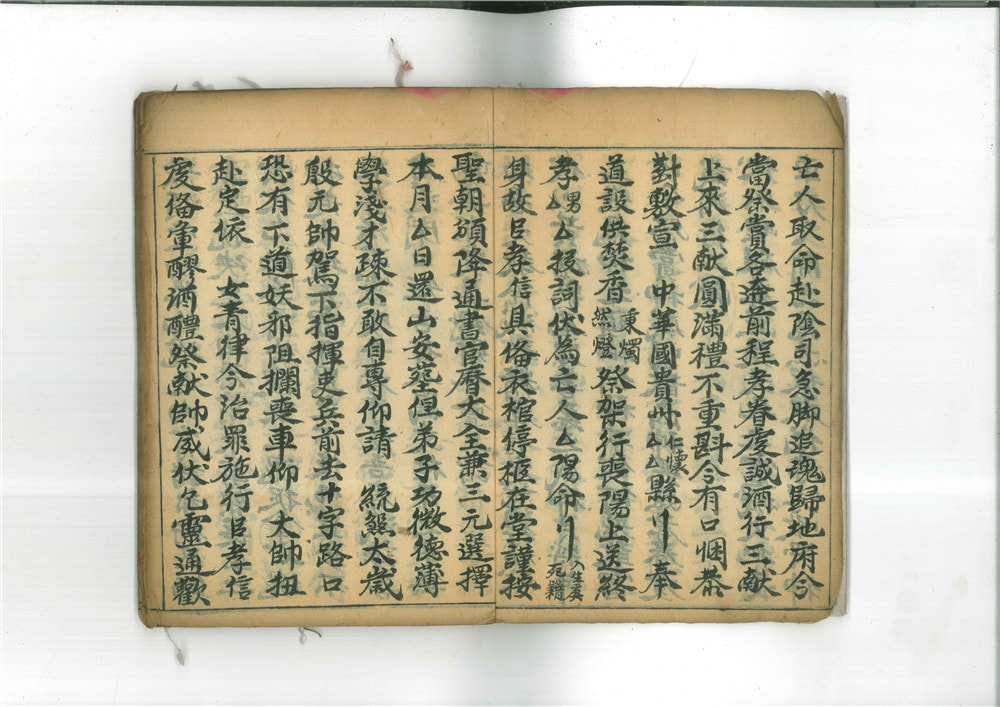 亡人取命赴陰司急脚追魂歸地府今
當祭賞各逩前程孝眷虔誠酒行三献
上來三献圓滿禮不重斟今有口悃恭
對敷宣 中華國貴州仁懷厶厶縣 奉
道設供焚香秉燭然燈祭架行喪陽上送終
孝男厶厶投詞伏為亡人厶陽命 入生庚死
身故臣孝信具俻衣棺停柩在堂謹按
聖朝頒降通書官曆大全兼三元選擇
本月厶日還山安塟但弟子功微德薄
學淺才疎不敢自專仰請 統煞太歲
殷元帥駕下指揮吏兵前去十字路口
恐有下道妖邪阻攔喪車仰 大帥扭
赴定依 女青律令治罪施行臣孝信
虔俻𩞄醪酒醴祭献帥威伏乞靈通歡